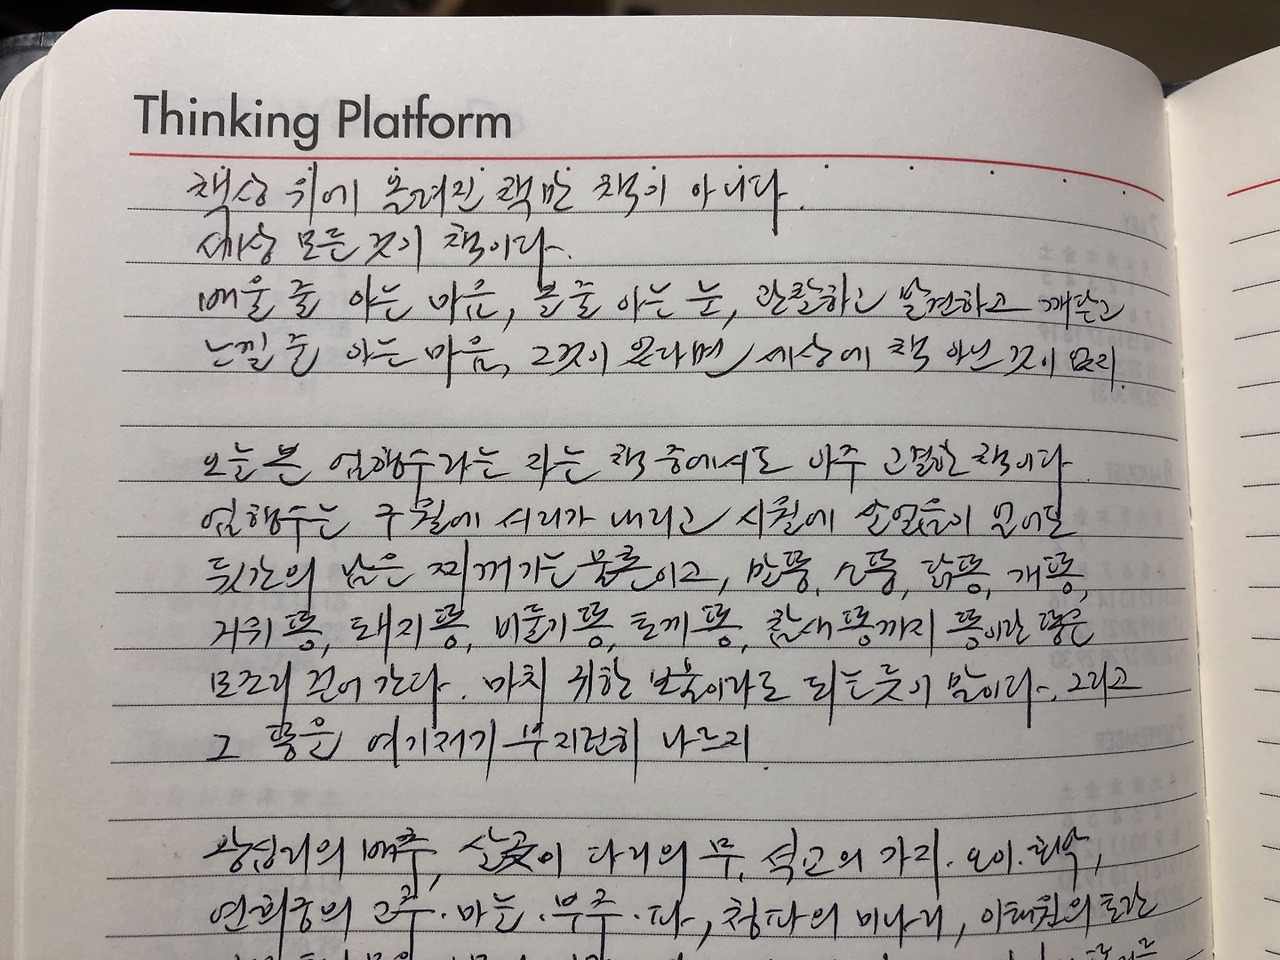 Thinking Platform
책상 위에 올려진 책만 책이 아니다.
세상 모든 것이 책이다.
배울 줄 아는 마음, 볼줄 아는 눈, 관찰하고 발견하고 깨닫고
느낄 줄 아는 마음, 그것이 있다면 세상에 책 아닌 것이 없지.
오늘 본 엄행수라는 자는 책 중에서도 아주 고결한 책이다.
엄행수는 구월에 서리가 내리고 시월에 살얼음이 얼어도
뒷간의 남은 찌꺼기는 물론이고, 말똥, 소똥, 닭똥, 개똥,
거위똥, 돼지똥, 비둘기똥, 토끼똥, 참새똥까지 똥이란 똥은
모조리 걷어 간다. 마치 귀한 보물이라도 되는듯이 말이다. 그리고
그 똥을 여기저기 부지런히 나르지.
왕십리의 배추, 살곶이 다리의 무, 석교의 가지·오이·
연희궁의 고추·마늘·부추·파, 청파의 미나리, 이태원의 토란